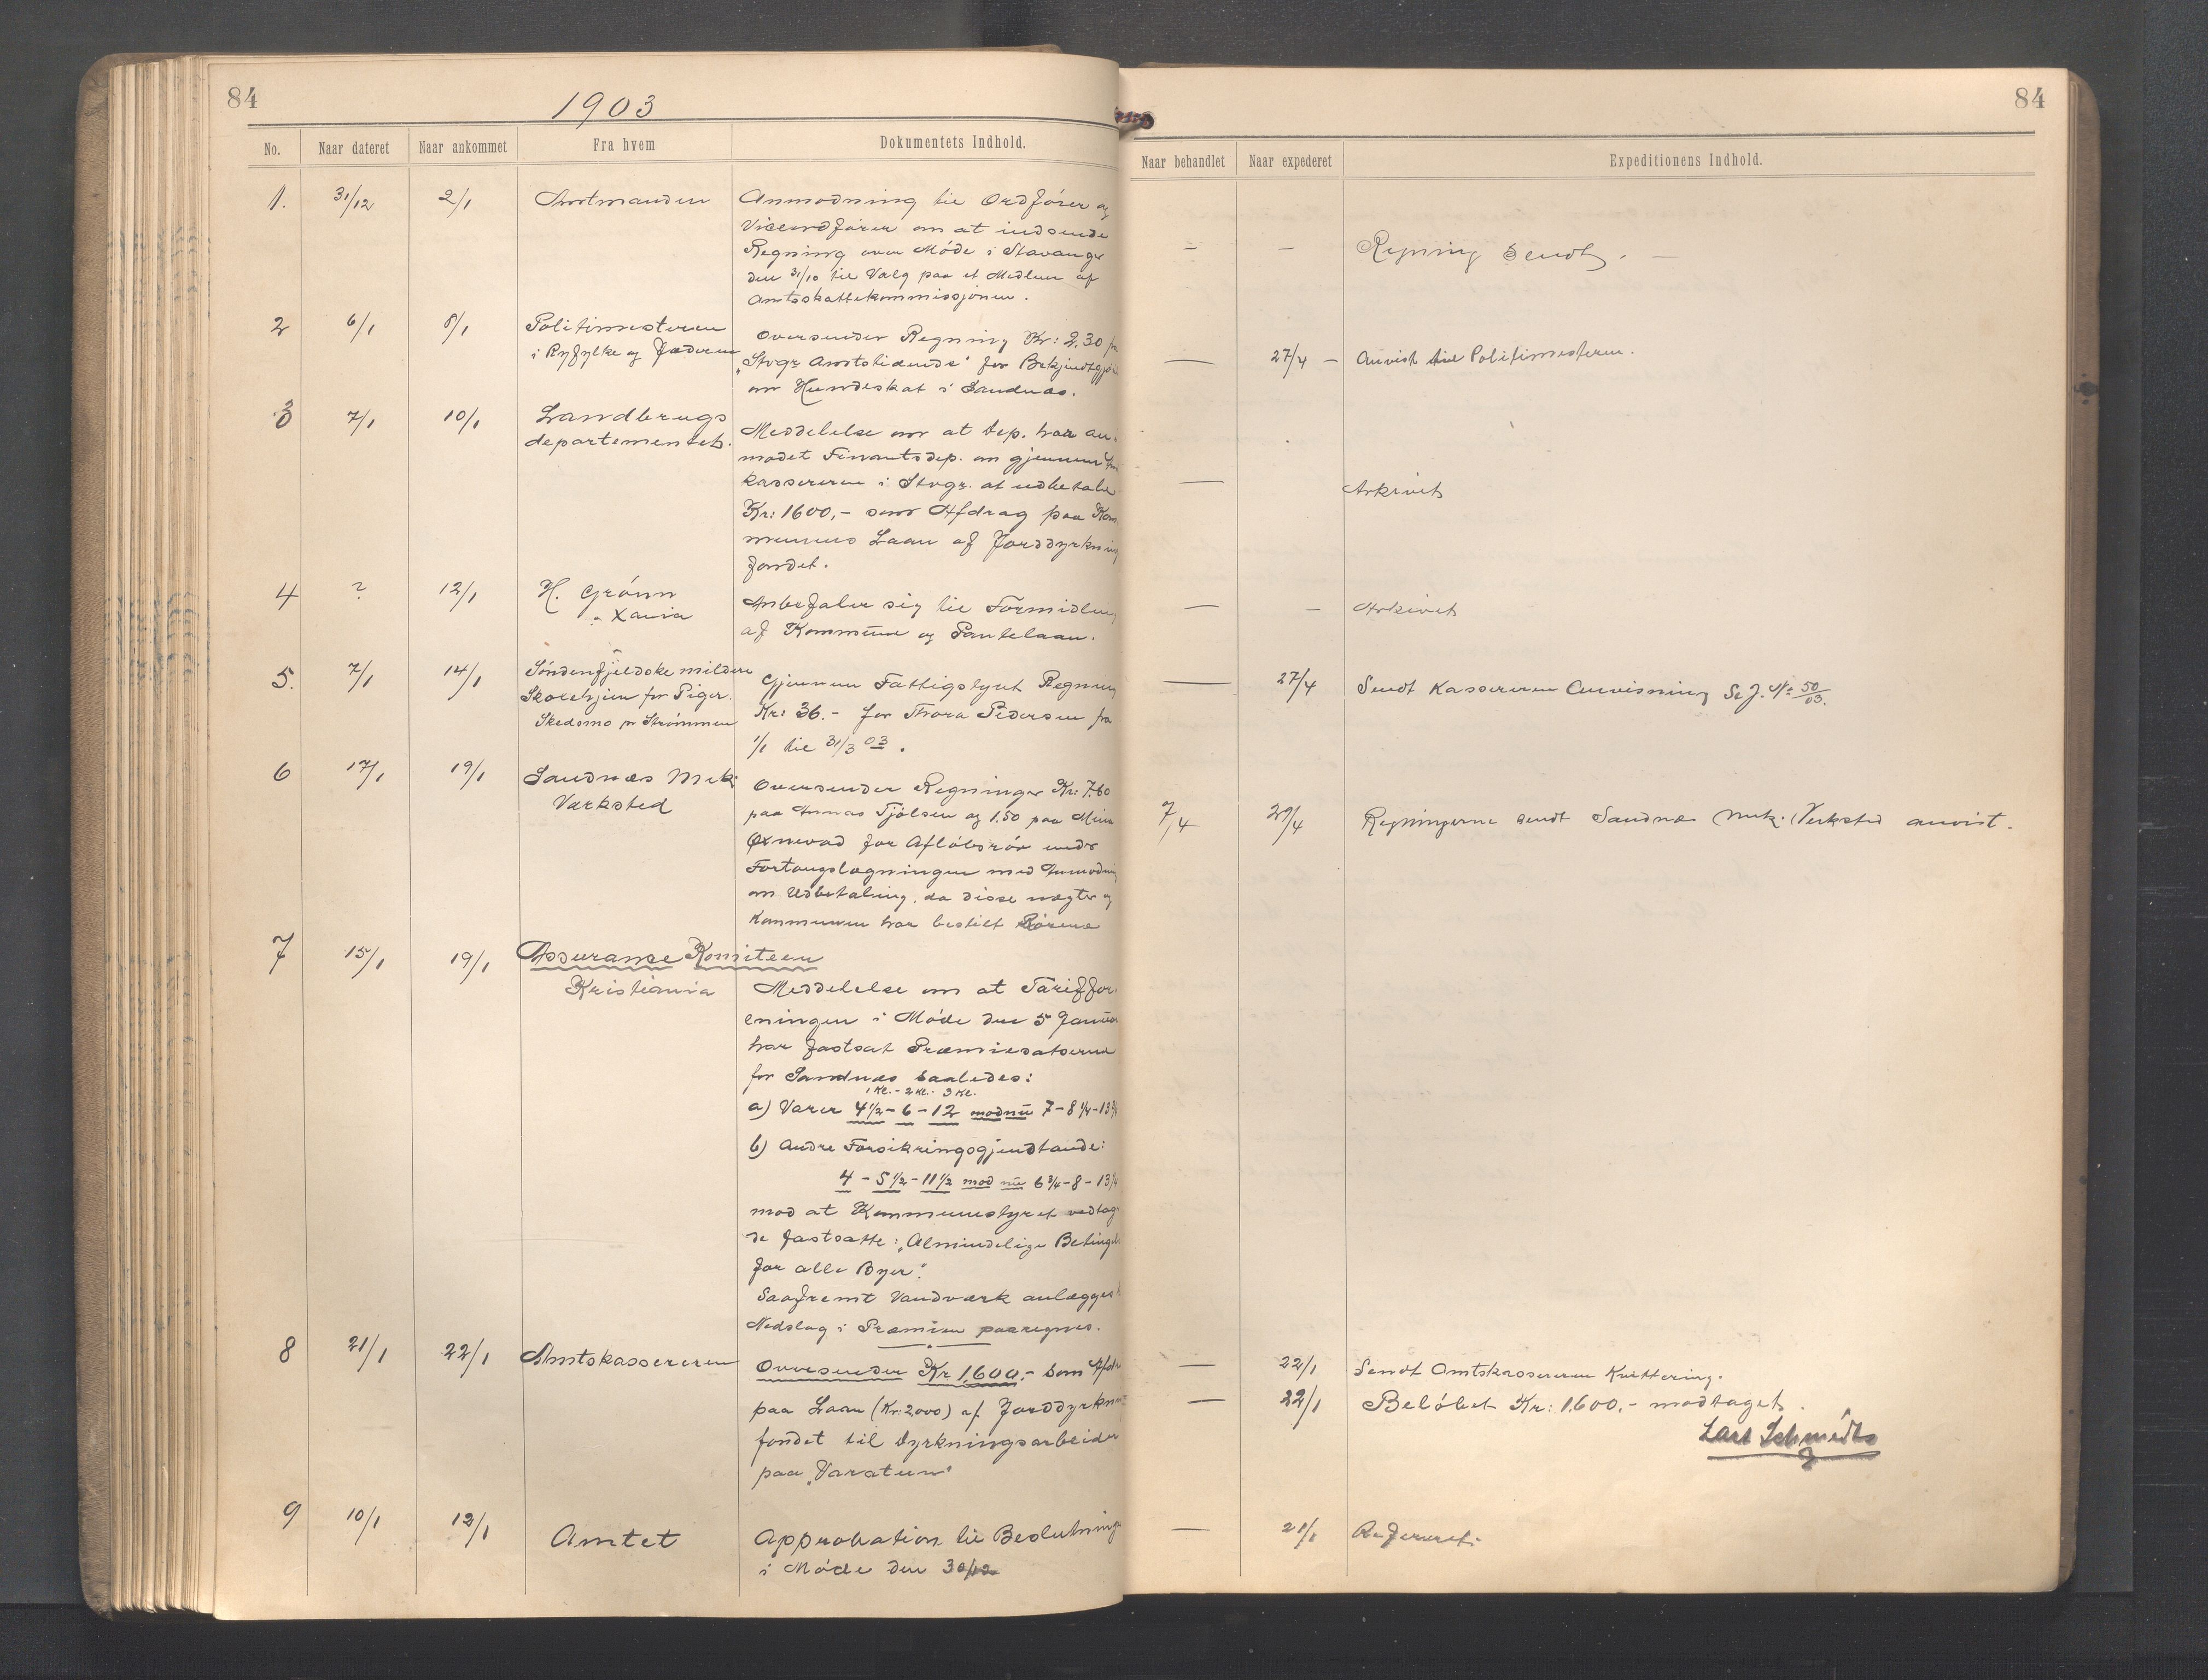 84
1903
No.
Naar dateret
Naar ankommet
Fra hvem
Dokumentets Indhold.
1.
31/12
2/1
Amtmanden
Anmodning til Ordfører og
Viceordfører om at indsende
Regning over Møde i Stavanger
den 31/10 til Valg paa et Medlem af
Amtsskattekommissjonen.
2
6/1
8/1
Politimesteren
i Ryfylke og Jæderen
Oversender Regning Kr: 2.30 fra
„Stvgr Amtstidende" for Bekjendtgjør
om Hundeskat i Sandnæs.
3
7/1
10/1
Landbrugs
departementet.
Meddelelse om at Dep. har an-
modet Finantsdep. om gjennem
kassereren i Stvgr. at udbetale
Kr: 1600,- som Afdrag paa Kom
munens Laan af Jorddyrkning
fondet.
4
?
12/1
H. Grønn
Xania
Anbefaler sig til Formidling
af Kommune og Pantelaan.
5.
7/1
14/1
Søndenfjeldske mildere
Skolehjem for Piger.
Skedsmo pr Strømmen
Gjennem Fattigstyret Regning
Kr: 36.- for Thora Pedersen fra
1/1 til 31/3 03.
6
17/1
19/1
Sandnæs Mek.
Værksted
Oversender Regninger Kr: 7.60
paa Tjølsen og 1.50 paa
Øxnevad for Afløbsrør under
Fortougslægningen med Anmodning
om Udbetaling, da disse nægter og
Kommunen har bestilt Rørene
7
15/1
19/1
Assuranse Komiteen
Kristiania
Meddelelse om at Tariffor-
eningen i Møde den 5 Januar
har fastsat Præmiesatserne
for Sandnæs saaledes:
1 Kl. - 2 Kl. - 3 Kl.
a) Varer 4 1/2 - 6 - 12 mod nu 7 - 8 1/4 - 13 3/4
b) Andre Forsikringsgjendstande:
4 - 5 1/2 - 11 1/2 mod nu 6 3/4 - 8 - 13 1/4
mod at Kommunestyret vedtag
de fastsatte: „Almindelige Betingels
for alle Byer".
Saafremt Vandværk anlægges
Nedslag i Præmien paaregnes.
8
21/1
22/1
Amtskassereren
Oversender Kr 1,600.- som Afdr
paa Laan (Kr: 2000) af Jorddyrkn
fondet til Dyrkningsarbeider
paa „Varatun"
9
10/1
12/1
Amtet
Approbation til Beslutninger
i Møde den 30/12
84
Naar behandlet
Naar expederet
Expeditionens Indhold.
— — Regning sendt. —
— 27/4 — Anvist til Politimesteren.
— Arkivet
— — Arkivet
— 27/4 Sendt Kassereren Anvisning Se J. No 50/03.
7/4 29/4 Regningerne sendt Sandnæs Mek. Verksted anvist.
— 22/1 Sendt Amtskassereren Kvittering.
— 22/1 Beløbet Kr: 1.600.- modtaget.
Lars Schmedts
— 21/1 Refereret.